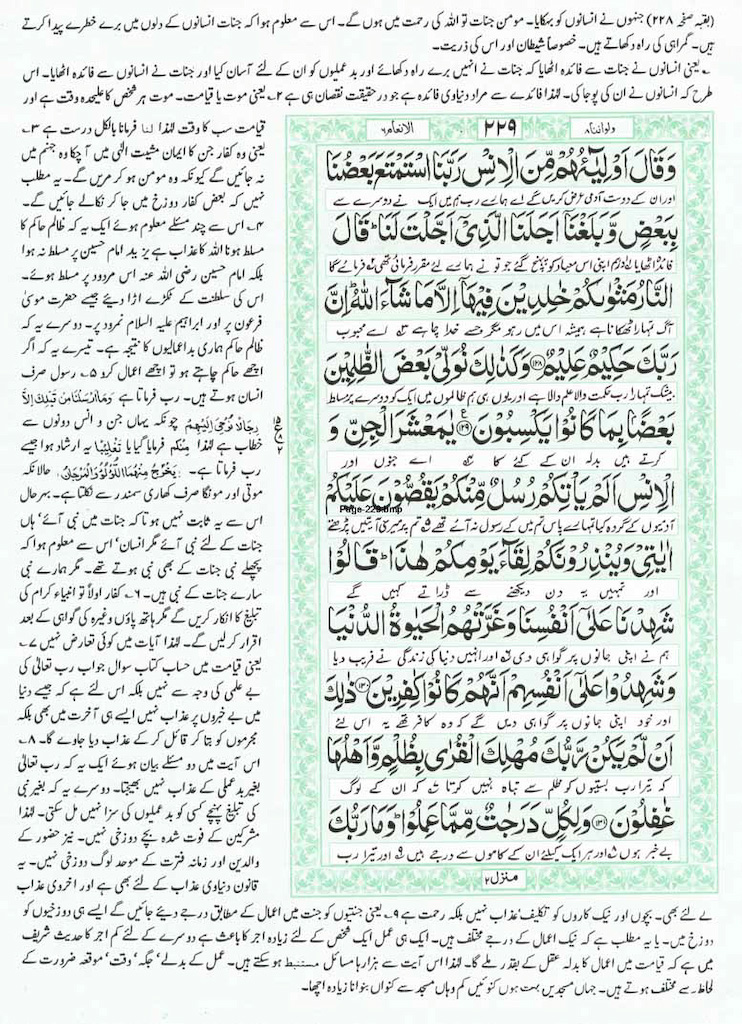 (بقیہ صفحہ ۲۲۸) جنہوں نے انسانوں کو بہکایا۔ مومن جنات تو اللہ کی رحمت میں ہوں گے۔ اس سے معلوم ہوا کہ جنات انسانوں کے دلوں میں برے خطرے پیدا کرتے
ہیں۔ گمراہی کی راہ دکھاتے ہیں۔ خصوصاً شیطان اور اس کی ذریت۔
۱۔ یعنی انسانوں نے جنات سے فائدہ اٹھایا کہ جنات نے انہیں برے راہ دکھائے اور بد عملیوں کو ان کے لئے آسان کیا اور جنات نے انسانوں سے فائدہ اٹھایا۔ اس
طرح کہ انسانوں نے ان کی پوجا کی۔ لہٰذا فائدے سے مراد دنیاوی فائدہ ہے جو درحقیقت نقصان ہی ہے ۲۔ یعنی موت یا قیامت۔ موت ہر شخص کا علیحدہ وقت ہے اور
قیامت سب کا وقت لہٰذا لنا فرمانا بالکل درست ہے ۳۔
یعنی وہ کفار جن کا ایمان مشیت الٰہی میں آچکا وہ جہنم میں
نہ جائیں گے کیونکہ وہ مومن ہو کر مریں گے۔ یہ مطلب
نہیں کہ بعض کفار دوزخ میں جا کر نکالے جائیں گے۔
۴۔ اس سے چند مسئلے معلوم ہوئے ایک یہ کہ ظالم حاکم کا
مسلط ہونا اللہ کا عذاب ہے یزید امام حسین پر مسلط نہ ہوا
بلکہ امام حسین رضی اللہ عنہ اس مردود پر مسلط ہوئے۔
اس کی سلطنت کے ٹکڑے اڑا دیئے جیسے حضرت موسیٰ
فرعون پر اور ابراہیم علیہ السلام نمرود پر۔ دوسرے یہ کہ
ظالم حاکم ہماری بداعمالیوں کا نتیجہ ہے۔ تیسرے یہ کہ اگر
اچھے حاکم چاہتے ہو تو اچھے اعمال کرو ۵۔ رسول صرف
انسان ہوتے ہیں۔ رب فرماتا ہے وَمَآ اَرْسَلْنَا مِنْ قَبْلِكَ اِلَّا
رِجَالًا نُّوْحِيْٓ اِلَيْهِمْ چونکہ یہاں جن و انس دونوں سے
خطاب ہے لہٰذا مِنْكُمْ فرمایا گیا یا تغلیباً یہ ارشاد ہوا جیسے
رب فرماتا ہے۔ يَخْرُجُ مِنْهُمَا اللُّؤْلُؤُ وَالْمَرْجَانُ حالانکہ
موتی اور مونگا صرف کھاری سمندر سے نکلتا ہے۔ بہرحال
اس سے یہ ثابت نہیں ہوتا کہ جنات میں نبی آئے‘ ہاں
جنات کے لئے نبی آئے مگر انسان‘ اس سے معلوم ہوا کہ
پچھلے نبی جنات کے بھی نبی ہوتے تھے۔ مگر ہمارے نبی
سارے جنات کے نبی ہیں۔ ۶۔ کفار اولاً تو انبیاء کرام کی
تبلیغ کا انکار کریں گے مگر ہاتھ پاؤں وغیرہ کی گواہی کے بعد
اقرار کرلیں گے۔ لہٰذا آیات میں کوئی تعارض نہیں ۷۔
یعنی قیامت میں حساب کتاب سوال جواب رب تعالیٰ کی
بے علمی کی وجہ سے نہیں بلکہ اس لئے ہے کہ جیسے دنیا
میں بے خبروں پر عذاب نہیں ایسے ہی آخرت میں بھی بلکہ
مجرموں کو بتا کر قائل کر کے عذاب دیا جاوے گا۔ ۸۔
اس آیت میں دو مسئلے بیان ہوئے ایک یہ کہ رب تعالیٰ
بغیر بدعملی کے عذاب نہیں بھیجتا۔ دوسرے یہ کہ بغیر نبی
کی تبلیغ پہنچے کسی کو بد عملیوں کی سزا نہیں مل سکتی۔ لہٰذا
مشرکین کے فوت شدہ بچے دوزخی نہیں۔ نیز حضور کے
والدین اور زمانہ فترت کے موحد لوگ دوزخی نہیں۔ یہ
قانون دنیاوی عذاب کے لئے بھی ہے اور اخروی عذاب
ع ۱۵ ۸ ۲
ولواننا ۸
۲۲۹
الانعام ۶
وَقَالَ اَوْلِيٰٓـُٔهُمْ مِّنَ الْاِنْسِ رَبَّنَا اسْتَمْتَعَ بَعْضُنَا
اور ان کے دوست آدمی عرض کریں گے اے ہمارے رب ہم میں ایک نے دوسرے سے
بِبَعْضٍ وَّبَلَغْنَآ اَجَلَنَا الَّذِيْٓ اَجَّلْتَ لَنَا ؕ قَالَ
فائدہ اٹھایا ۱ اور ہم اپنی اس میعاد کو پہنچ گئے جو تو نے ہمارے لئے مقرر فرمائی تھی ۲ فرمائے گا
النَّارُ مَثْوٰىكُمْ خٰلِدِيْنَ فِيْهَآ اِلَّا مَا شَآءَ اللّٰهُ ؕ اِنَّ
آگ تمہارا ٹھکانا ہے ہمیشہ اس میں رہو مگر جسے خدا چاہے ۳ اے محبوب
رَبَّكَ حَكِيْمٌ عَلِيْمٌ ﴿۱۲۸﴾ وَكَذٰلِكَ نُوَلِّيْ بَعْضَ الظّٰلِمِيْنَ
بیشک تمہارا رب حکمت والا علم والا ہے اور یوں ہی ہم ظالموں میں ایک کو دوسرے پر مسلط
بَعْضًۢا بِمَا كَانُوْا يَكْسِبُوْنَ ﴿۱۲۹﴾ يٰمَعْشَرَ الْجِنِّ وَ
کرتے ہیں بدلہ ان کے کئے کا ۴ اے جنوں اور
الْاِنْسِ اَلَمْ يَاْتِكُمْ رُسُلٌ مِّنْكُمْ يَقُصُّوْنَ عَلَيْكُمْ
Page-229.bmp
آدمیوں کے گروہ کیا تمہارے پاس تم میں کے رسول نہ آئے تھے ۵ تم پر میری آیتیں پڑھتے
اٰيٰتِيْ وَيُنْذِرُوْنَكُمْ لِقَآءَ يَوْمِكُمْ هٰذَا ؕ قَالُوْا
اور تمہیں یہ دن دیکھنے سے ڈراتے کہیں گے
شَهِدْنَا عَلٰٓى اَنْفُسِنَا وَغَرَّتْهُمُ الْحَيٰوةُ الدُّنْيَا
ہم نے اپنی جانوں پر گواہی دی ۶ اور انہیں دنیا کی زندگی نے فریب دیا
وَشَهِدُوْا عَلٰٓى اَنْفُسِهِمْ اَنَّهُمْ كَانُوْا كٰفِرِيْنَ ﴿۱۳۰﴾ ذٰلِكَ
اور خود اپنی جانوں پر گواہی دیں گے کہ وہ کافر تھے یہ اس لئے
اَنْ لَّمْ يَكُنْ رَّبُّكَ مُهْلِكَ الْقُرٰى بِظُلْمٍ وَّاَهْلُهَا
کہ تیرا رب بستیوں کو ظلم سے تباہ نہیں کرتا ۷ کہ ان کے لوگ
غٰفِلُوْنَ ﴿۱۳۱﴾ وَلِكُلٍّ دَرَجٰتٌ مِّمَّا عَمِلُوْا ؕ وَمَا رَبُّكَ
بے خبر ہوں ۸ اور ہر ایک کیلئے ان کے کاموں سے درجے ہیں ۹ اور تیرا رب
منزل ۲
کے لئے بھی۔ بچوں اور نیک کاروں کو تکلیف‘ عذاب نہیں بلکہ رحمت ہے ۹۔ یعنی جنتیوں کو جنت میں اعمال کے مطابق درجے دیئے جائیں گے ایسے ہی دوزخیوں کو
دوزخ میں۔ یا یہ مطلب ہے کہ نیک اعمال کے درجے مختلف ہیں۔ ایک ہی عمل ایک شخص کے لئے زیادہ اجر کا باعث ہے دوسرے کے لئے کم اجر کا حدیث شریف
میں ہے کہ قیامت میں اعمال کا بدلہ عقل کے بقدر ملے گا۔ لہٰذا اس آیت سے ہزارہا مسائل مستنبط ہوسکتے ہیں۔ عمل کے بدلے‘ جگہ‘ وقت‘ موقعہ ضرورت کے
لحاظ۔ سے مختلف ہوتے ہیں۔ جہاں مسجدیں بہت ہوں کنوئیں کم وہاں مسجد سے کنواں بنوانا زیادہ اچھا۔